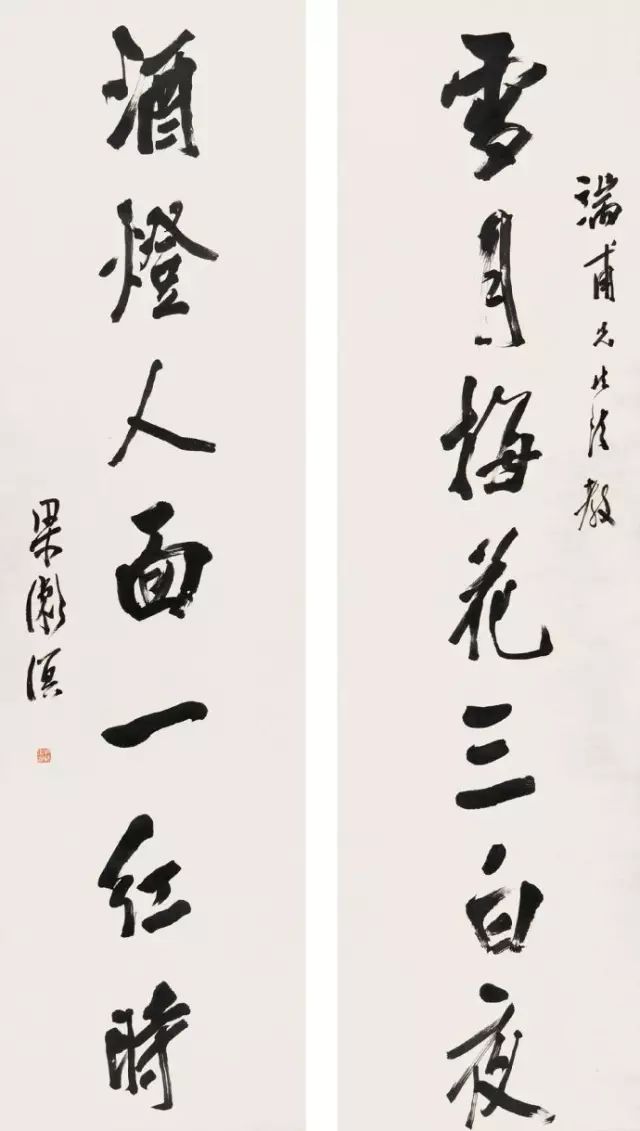 端甫先生法教
雪月梅花三白夜
酒燈人面一紅時
梁漱溟